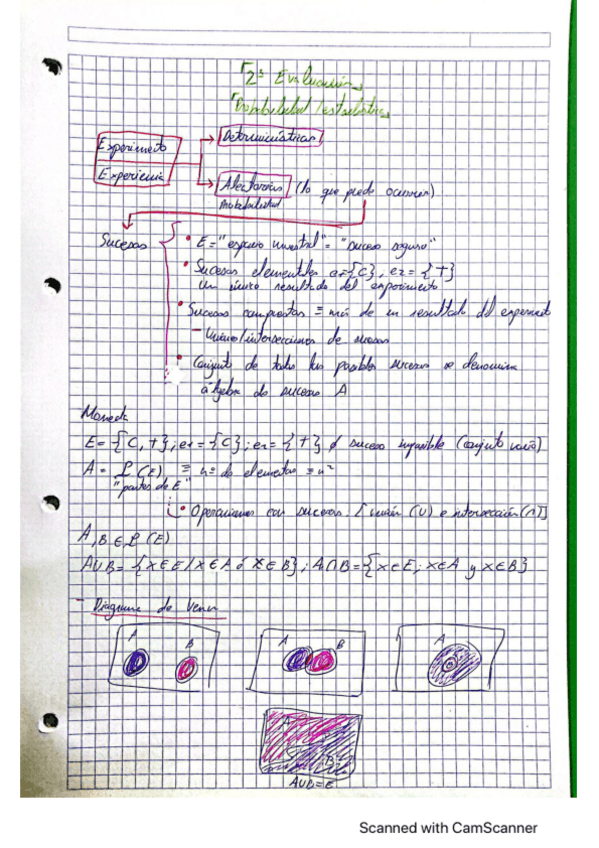 2ª Evaluación
Probabilidad/estadística
Experimento
Experiencia
Determinísticas
Aleatorias (lo que puede ocurrir)
Probabilidad
Sucesos
• E = "espacio muestral" = "suceso seguro"
• Sucesos elementales e1={C}, e2 = {+}
Un único resultado del experimento
• Sucesos compuestos ≡ más de un resultado del experimento
- Uniones/intersecciones de sucesos
• Conjunto de todos los posibles sucesos se denomina
álgebra de sucesos A
Moneda
E = {C, +}; e1 = {C}; e2 = {+} ∅ suceso imposible (conjunto vacío)
A = P(E) ≡ nº de elementos = n²
"partes de E"
• Operaciones con sucesos. [unión (∪) e intersección (∩)]
A, B ∈ P(E)
A∪B = {x∈E / x∈A ó x∈B}; A∩B = {x∈E; x∈A y x∈B}
- Diagrama de Venn
A B
A B
A
A B
A∪B = E
Scanned with CamScanner